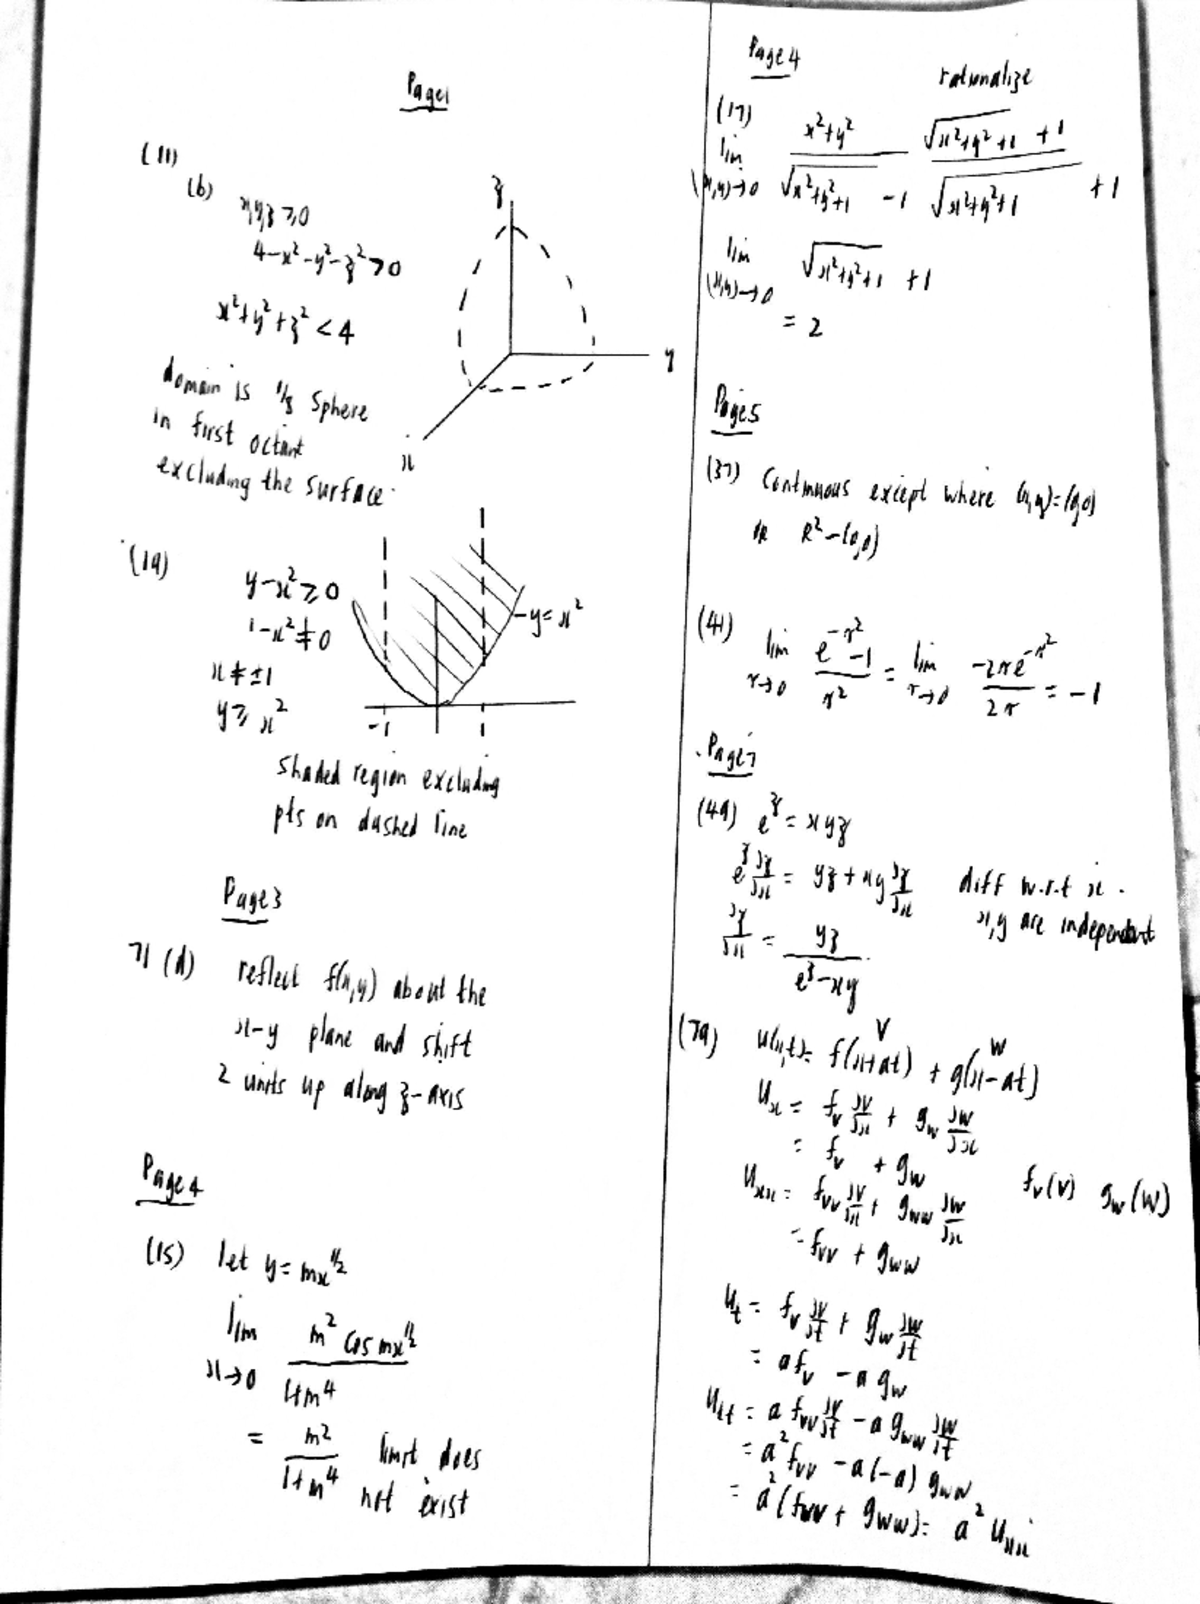 Page1
(11)
(b) x,y,z ≥0
4-x²-y²-z²>0
x²+y²+z² <4
domain is 1/8 sphere
in first octant
excluding the surface.
z
y
x
(19)
y-x²≥0
1-x²≠0
x≠±1
y≥x²
y=x²
-1
shaded region excluding
pts on dashed line
Page3
71 (d) reflect f(x,y) about the
x-y plane and shift
2 units up along z-axis
Page4
(15) let y=mx^1/2
lim x→0 m² cos mx^1/2 / 1+m⁴
= m² / 1+m⁴ limit does
not exist
Page4
rationalize
(17)
lim (x,y)→0 x²+y² / √x²+y²+1 -1 √x²+y²+1 +1 / √x²+y²+1 +1
lim (x,y)→0 √x²+y²+1 +1
= 2
Page5
(37) Continuous except where (x,y)=(0,0)
or R²-(0,0)
(41) lim r→0 e^-r² -1 / r² = lim r→0 -2re^-r² / 2r = -1
Page7
(49) e^z = xyz
e^z ∂z/∂x = yz + xy ∂z/∂x diff w.r.t x.
x,y are independent
∂z/∂x = yz / e^z-xy
(79) u(x,t)= f(x+at) + g(x-at)
V
W
u_x = f_v ∂v/∂x + g_w ∂w/∂x
= f_v + g_w f_v(v) g_w(w)
u_xx = f_vv ∂v/∂x + g_ww ∂w/∂x
= f_vv + g_ww
u_t = f_v ∂v/∂t + g_w ∂w/∂t
= af_v - a g_w
u_tt = a f_vv ∂v/∂t - a g_ww ∂w/∂t
= a² f_vv - a(-a) g_ww
= a² (f_vv + g_ww) = a² u_xx